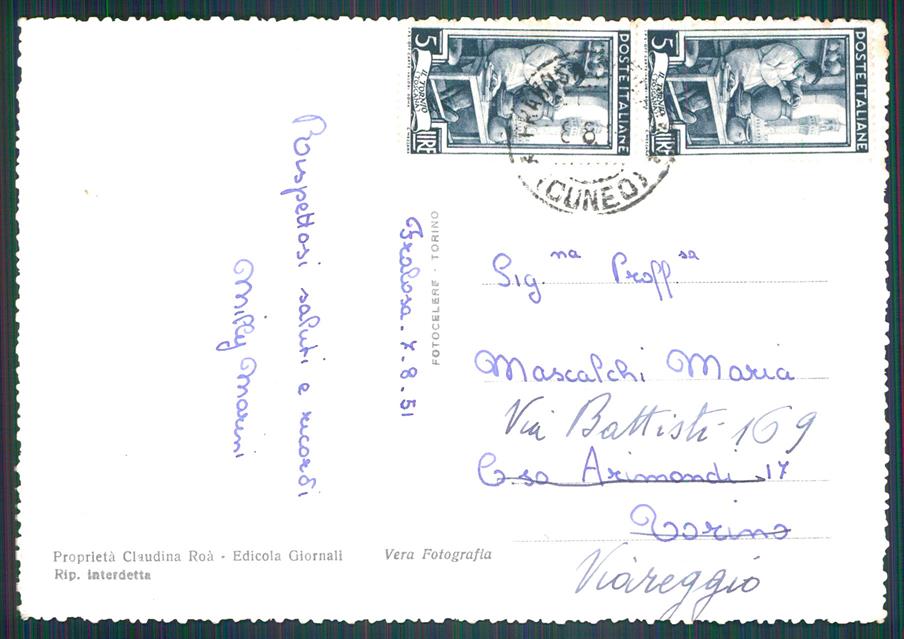 POSTE ITALIANE
5
LIRE
IL TORNIO
POSTE ITALIANE
5
LIRE
IL TORNIO
(CUNEO)
Rispettosi saluti e ricordi
Milly Marini
Frabosa. 7.8.51
FOTOCELERE - TORINO
Sig.na Proff.sa
Mascalchi Maria
Via Battisti 169
C.so Arimondi 17
Torino
Viareggio
Proprietà Claudina Roà - Edicola Giornali
Rip. interdetta
Vera Fotografia